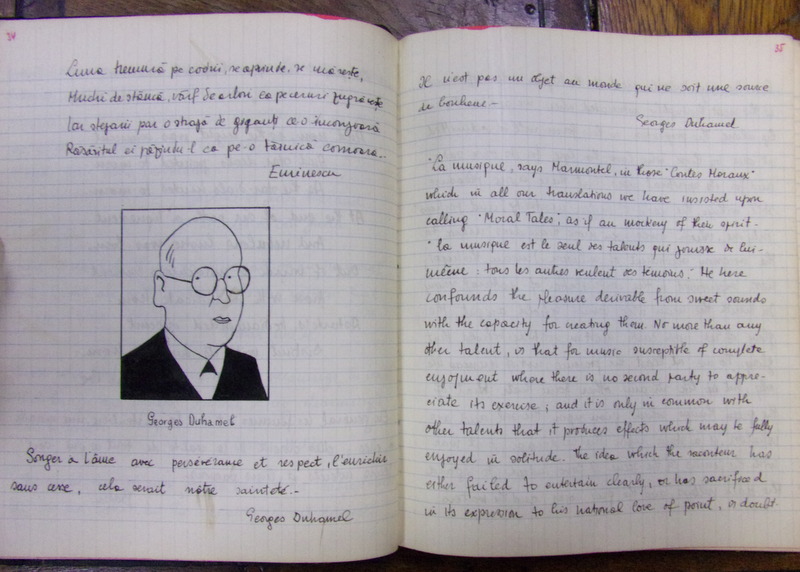 34
Luna tremură pe codri, se aprinde, se mărește,
Muchi de stâncă, vârf de arbori ea pe ceruri zugrăvește
Iar stejarii par o strajă de giganți ce-o înconjoară
Răsăritul ei păzindu-l ca pe-o tainică comoară..
Eminescu
Georges Duhamel
Songer a l'âme avec persévérance et respect, l'enrichir
sans cesse, cela serait nôtre sainteté.-
Georges Duhamel
35
Il n'est pas un objet au monde qui ne soit une source
de bonheur-
Georges Duhamel
"La musique, says Marmontel, in those "Contes Moraux"
which in all our translations we have insisted upon
calling "Moral Tales", as if an mockery of their spirit-
"la musique est le seul des talents qui jouisse de lui-
même : tous les autres veulent des temoins." He here
confounds the pleasure derivable from sweet sounds
with the capacity for creating them. No more than any
other talent, is that for music susceptible of complete
enjoyment where there is no second party to appre-
ciate its exercise; and it is only in common with
other talents that it produces effects which may be fully
enjoyed in solitude. The idea which the raconteur has
either failed to entertain clearly, or has sacrificed
in its expression to his national love of point, is doubt-